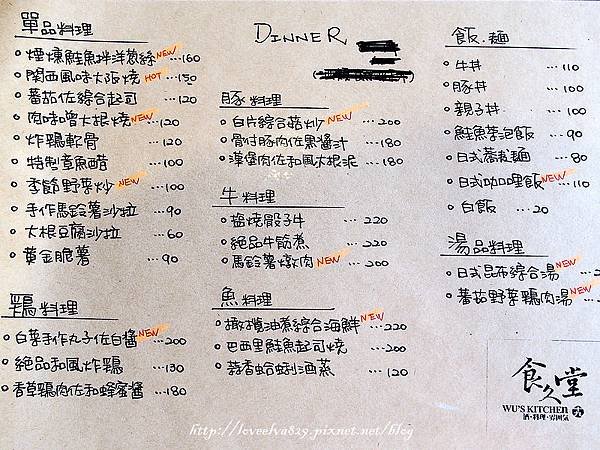 單品料理
煙燻鮭魚拌洋蔥絲 NEW ...160
関西風味大阪燒 HOT ...150
蕃茄佐綜合起司 ...120
肉味噌大根燒 NEW ...120
炸鶏軟骨 ...120
特制章魚醋 ...100
季節野菜炒 NEW ...100
手作馬鈴薯沙拉 ...90
大根豆腐沙拉 ...60
黃金脆薯 ...90
鶏料理
白菜手作丸子佐白醬 NEW ...200
絕品和風炸鶏 ...130
香草鶏肉佐和蜂蜜醬 ...180
DINNER
豚料理
白片綜合菇炒 NEW ...200
骨付豚肉佐果醬汁 ...180
漢堡肉佐和風大根泥 ...180
牛料理
塩燒骰子牛 ...220
絕品牛筋煮 ...220
馬鈴薯燉肉 NEW ...200
魚料理
橄欖油煮綜合海鮮 NEW ...220
巴西里鮭魚起司燒 ...200
蒜香蛤蜊酒蒸 ...120
飯.麵
牛丼 ...110
豚丼 ...100
親子丼 ...100
鮭魚茶泡飯 ...90
日式蕎麦麵 ...80
日式咖哩飯 NEW ...110
白飯 ...20
湯品料理
日式昆布綜合湯 NEW
蕃茄野菜鶏肉湯 NEW ...
食久堂
WU'S KITCHEN
酒.料理.雰囲気
http://loveelva829.pixnet.net/blog